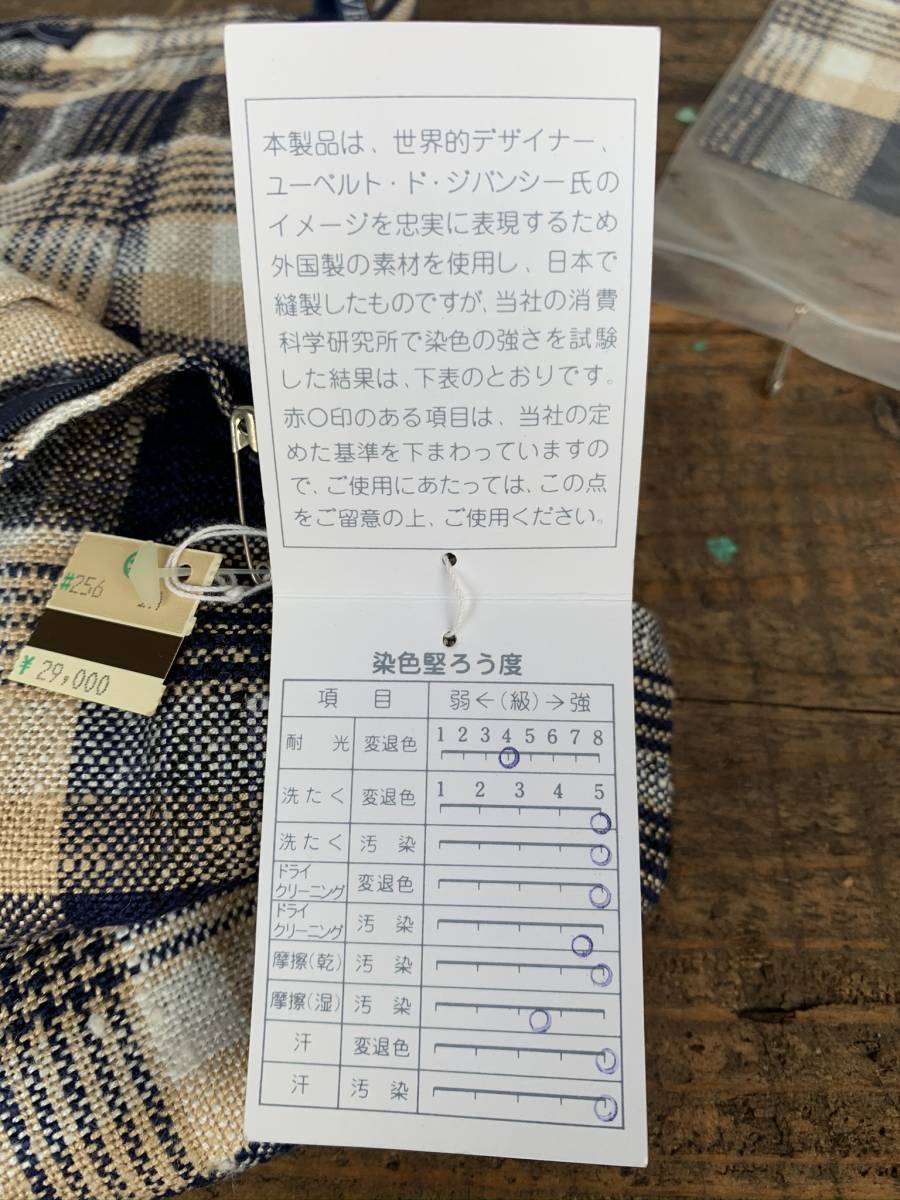 本製品は、世界的デザイナー、
ユーベルト・ド・ジバンシー氏の
イメージを忠実に表現するため
外国製の素材を使用し、日本で
縫製したものですが、当社の消費
科学研究所で染色の強さを試験
した結果は、下表のとおりです。
赤〇印のある項目は、当社の定
めた基準を下まわっていますの
で、ご使用にあたっては、この点
をご留意の上、ご使用ください。
#256
¥ 29,000
染色堅ろう度
項 目 弱←(級)→強
耐 光 変退色 1 2 3 4 5 6 7 8
洗たく 変退色 1 2 3 4 5
洗たく 汚 染
ドライ
クリーニング 変退色
ドライ
クリーニング 汚 染
摩擦(乾) 汚 染
摩擦(湿) 汚 染
汗 変退色
汗 汚 染